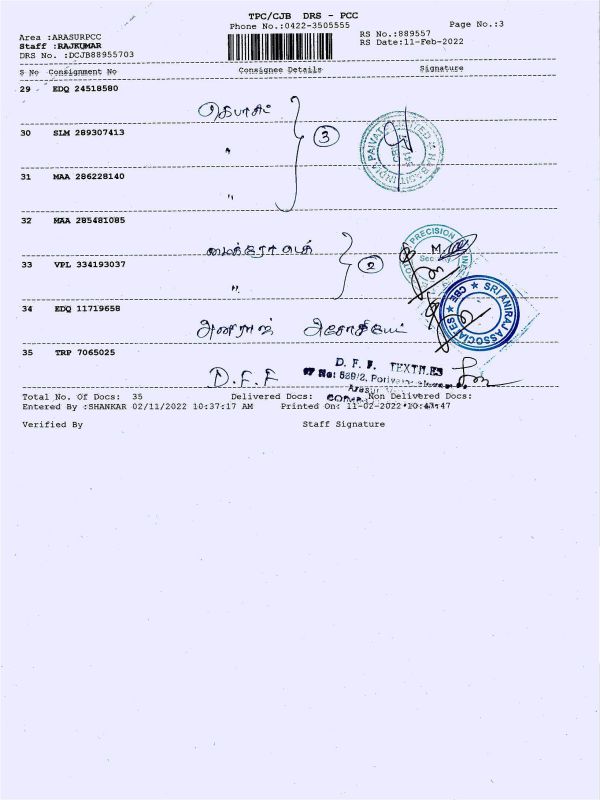 TPC/CJB DRS - PCC
Phone No.:0422-3505555
Page No.:3
Area :ARASURPCC
RS No.:889557
Staff :RAJKUMAR
RS Date:11-Feb-2022
DRS No. :DCJB88955703
S No Consignment No Consignee Details Signature
29 EDQ 24518580
30 SLM 289307413
3
31 MAA 286228140
"
32 MAA 285481085
33 VPL 334193037
2
"
34 EDQ 11719658
PRECISION
SRI ANIRAJ ASSOCIATES ★ CBE ★
35 TRP 7065025
D.F.F
D. F. F. TEXTILES
Total No. Of Docs: 35 Delivered Docs: Non Delivered Docs:
Entered By :SHANKAR 02/11/2022 10:37:17 AM Printed On: 11-02-2022 10:47:47
Verified By Staff Signature